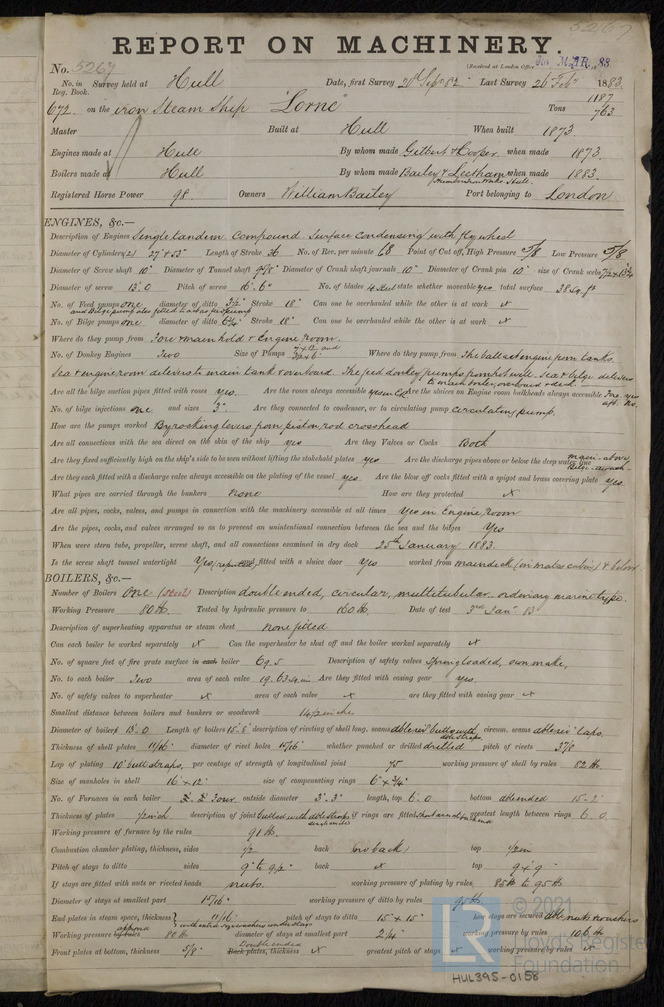 5267
REPORT ON MACHINERY.
No. 5267 (Received at London Office, Thur MAR. 1 83
No. in Survey held at Hull Date, first Survey 20th Sep 82 Last Survey 26 Feb 1883
Reg. Book. 1187
672 on the iron Steam Ship "Lorne" Tons 763
Master Built at Hull When built 1873
Engines made at Hull By whom made Gilbert & Cooper when made 1873
Boilers made at Hull By whom made Bailey & Leetham when made 1883
Registered Horse Power 98 Owners William Bailey Port belonging to London
ENGINES, &c.—
Description of Engines Single tandem Compound Surface Condensing with fly wheel
Diameter of Cylinders (2) 27" & 53" Length of Stroke 36 No. of Rev. per minute 68 Point of Cut off, High Pressure 5/8 Low Pressure 5/8
Diameter of Screw shaft 10" Diameter of Tunnel shaft 9 5/8" Diameter of Crank shaft journals 10" Diameter of Crank pin 10" size of Crank webs 7 1/2 x 13 1/4
Diameter of screw 13'.0 Pitch of screw 16'.6" No. of blades 4 Steel state whether moveable yes total surface 38 Sq. ft
No. of Feed pumps one diameter of ditto 3 1/2" Stroke 18" Can one be overhauled while the other is at work x
and Bilge pump also fitted to act as feed pump
No. of Bilge pumps one diameter of ditto 6 1/4" Stroke 18" Can one be overhauled while the other is at work x
Where do they pump from Fore & main hold & Engine Room.
No. of Donkey Engines Two Size of Pumps 7 x 12 and 3 1/2 x 6" Where do they pump from The ballast engine from tanks
Sea & engine room delivers to main tank & overboard. The feed donkey pumps from hot well. Sea & bilge delivers
to main boiler, overboard & deck
Are all the bilge suction pipes fitted with roses yes. Are the roses always accessible yes in E.R. Are the sluices on Engine room bulkheads always accessible Fore yes aft No.
No. of bilge injections one and sizes 3" Are they connected to condenser, or to circulating pump circulating pump.
How are the pumps worked By rocking levers from piston rod crosshead
Are all connections with the sea direct on the skin of the ship yes Are they Valves or Cocks Both
Are they fixed sufficiently high on the ship's side to be seen without lifting the stokehold plates yes Are the discharge pipes above or below the deep water line main - above Bilge - away
Are they each fitted with a discharge valve always accessible on the plating of the vessel yes. Are the blow off cocks fitted with a spigot and brass covering plate yes.
What pipes are carried through the bunkers None How are they protected x
Are all pipes, cocks, valves, and pumps in connection with the machinery accessible at all times Yes in Engine Room
Are the pipes, cocks, and valves arranged so as to prevent an unintentional connection between the sea and the bilges Yes
When were stern tube, propeller, screw shaft, and all connections examined in dry dock 25th January 1883.
Is the screw shaft tunnel watertight Yes (reported) fitted with a sluice door Yes worked from maindeck (in mates cabin) & below
BOILERS, &c.—
Number of Boilers One (steel) Description double ended, circular, multitubular - ordinary marine type.
Working Pressure 80 lb. Tested by hydraulic pressure to 160 lb. Date of test 3rd Jan'y 83
Description of superheating apparatus or steam chest None fitted
Can each boiler be worked separately x Can the superheater be shut off and the boiler worked separately x
No. of square feet of fire grate surface in each boiler 69.5 Description of safety valves Spring loaded, own make,
No. to each boiler Two area of each valve 19.63 sq. in Are they fitted with easing gear yes.
No. of safety valves to superheater x area of each valve x are they fitted with easing gear x
Smallest distance between boilers and bunkers or woodwork 14 inches
Diameter of boilers 13'.0 Length of boilers 15'.8" description of riveting of shell long. seams dble riv'd butts with dble straps circum. seams dble riv'd laps.
Thickness of shell plates 11/16" diameter of rivet holes 15/16" whether punched or drilled drilled pitch of rivets 3 7/8
Lap of plating 10" butt straps. per centage of strength of longitudinal joint 75 working pressure of shell by rules 82 lb.
Size of manholes in shell 16" x 12" size of compensating rings 6" x 3/4"
No. of Furnaces in each boiler Four outside diameter 3'.3" length, top 6'.0 bottom dble ended 15'-2"
Thickness of plates 1/2 inch description of joint Butted with dble straps if rings are fitted greatest length between rings 6'.0.
Working pressure of furnace by the rules 91 lb.
Combustion chamber plating, thickness, sides 1/2 back (no back) top 1/2 in
Pitch of stays to ditto sides 9" to 9 1/2" back x top 9 x 9"
If stays are fitted with nuts or riveted heads nuts. working pressure of plating by rules 85 lb to 95 lb.
Diameter of stays at smallest part 1 5/16" working pressure of ditto by rules 95 lb.
End plates in steam space, thickness 11/16" pitch of stays to ditto 15" x 15" how stays are secured dble nuts & washers
Working pressure by rules 80 lb diameter of stays at smallest part 2 1/4" working pressure by rules 106 lb
Front plates at bottom, thickness 5/8" Back plates, thickness Double ended x greatest pitch of stays x working pressure by rules x
© 2021
LR
Lloyd's Register
Foundation
HUL395-0158